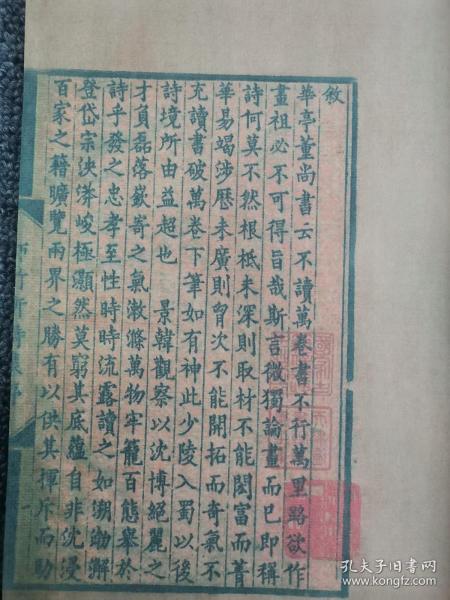 敘
華亭董尚書云不讀萬卷書不行萬里路欲作
畫祖必不可得旨哉斯言微獨論畫而已即稱
詩何莫不然根柢未深則取材不能閎富而菁
華易竭涉歷未廣則胷次不能開拓而奇氣不
充讀書破萬卷下筆如有神此少陵入蜀以後
詩境所由益超也 景韓觀察以沈博絕麗之
才負磊落嶔奇之氣漱滌萬物牢籠百態舉於
詩乎發之忠孝至性時時流露讀之如溯渤澥
登岱宗泱漭峻極顯然莫窮其底蘊自非沈浸
百家之籍曠覽兩界之勝有以供其揮斥而助
孔夫子旧书网
book.kongfz.com